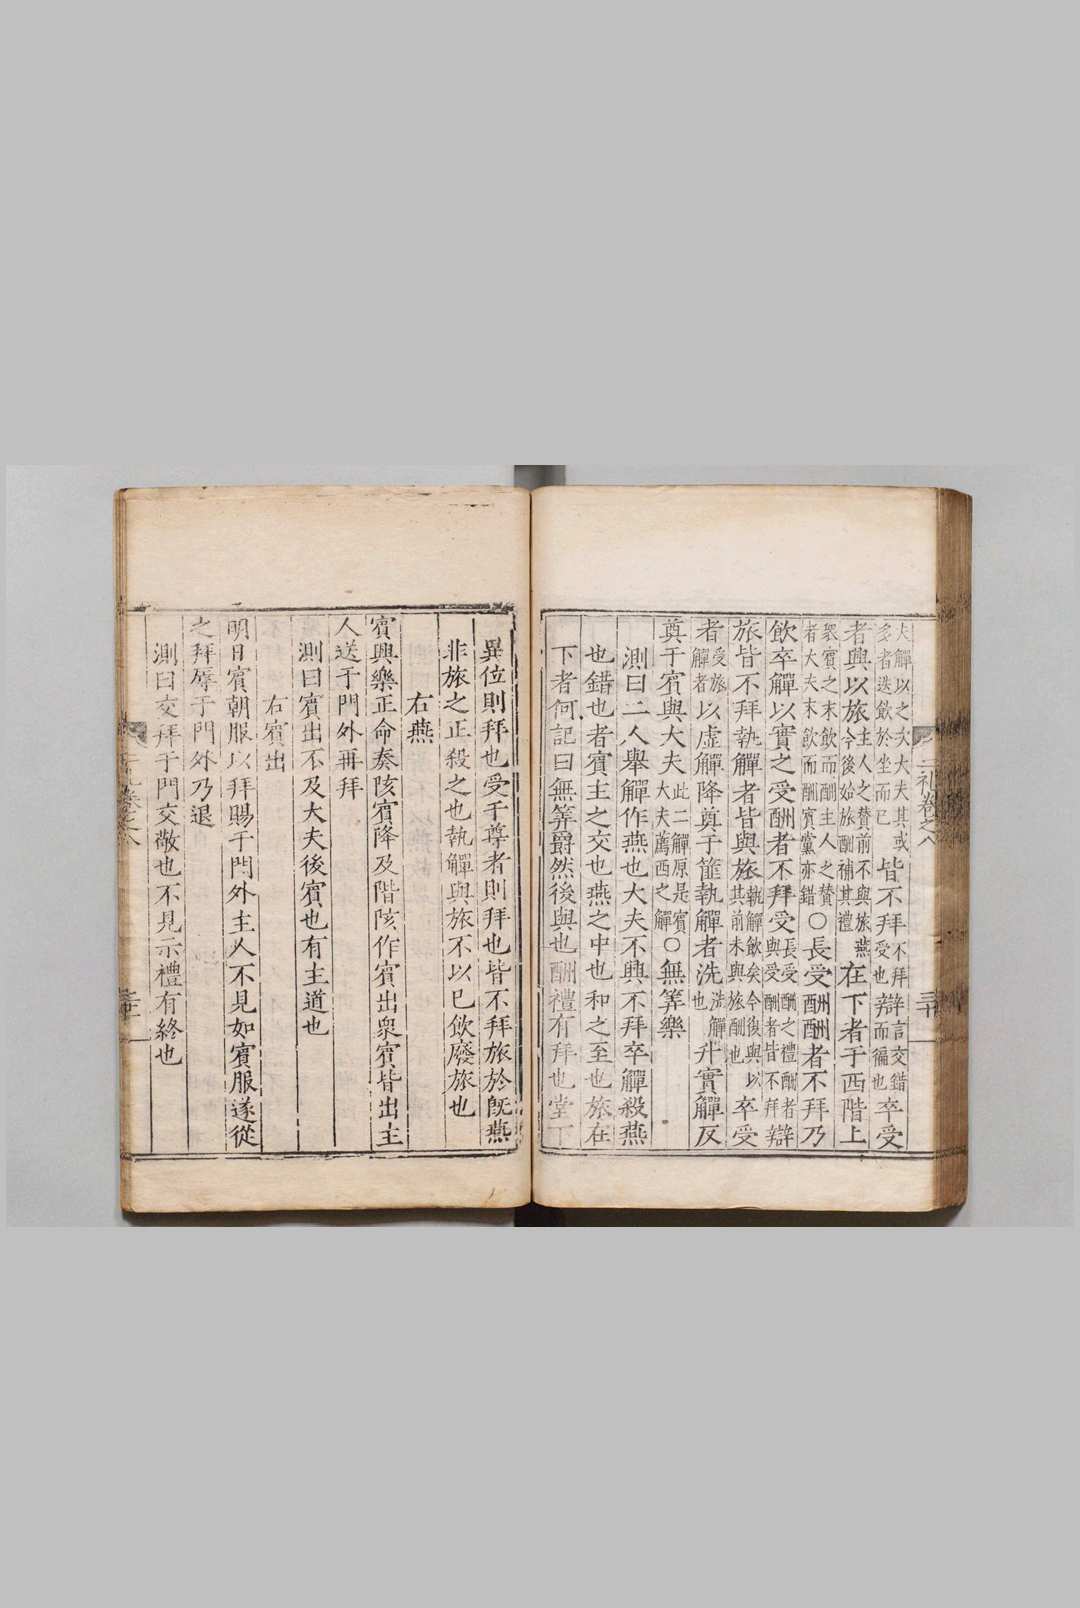 大觶以之次大夫其或
多者迭飲於坐而已
皆不拜
不拜
受也
辯
言交錯
而徧也
卒受
者興以旅
主人之贊前不與旅燕
今後始旅酬補其禮
在下者于西階上
衆賓之末飲而酬主人之贊
者大夫末飲而酬賓黨亦錯
〇長受酬酬者不拜乃
飲卒觶以實之受酬者不拜受
長受酬之禮酬者
與受酬者皆不拜
辯
旅皆不拜執觶者皆與旅
執觶飲矣今復與以
其前未與旅酬也
卒受
者
受旅
觶者
以虛觶降奠于篚執觶者洗
洗觶
也
升實觶反
奠于賓與大夫
此二觶原是賓
大夫薦西之觶
〇無筭樂
測曰二人舉觶作燕也大夫不興不拜卒觶殺燕
也錯也者賓主之交也燕之中也和之至也旅在
下者何記曰無筭爵然後與也酬禮有拜也堂下
異位則拜也受于尊者則拜也皆不拜旅於旣燕
非旅之正殺之也執觶與旅不以已飲廢旅也
右燕
賓興樂正命奏陔賓降及階陔作賓出衆賓皆出主
人送于門外再拜
測曰賓出不及大夫後賓也有主道也
右賓出
明日賓朝服以拜賜于門外主人不見如賓服遂從
之拜辱于門外乃退
測曰交拜于門交敬也不見示禮有終也